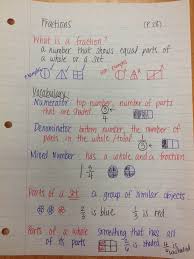 Fractions
What is a fraction?
a number that shows equal parts of
a whole or a set
examples
Vocabulary
Numerator: top number, number of parts
that are shaded.
3
4
Denominator: bottom number, the number of
parts in the whole/total.
Mixed Number: has a whole and a fraction
Parts of a set: a group of similar objects
is blue
is red
Parts of a whole: something that has all
of its parts
is shaded